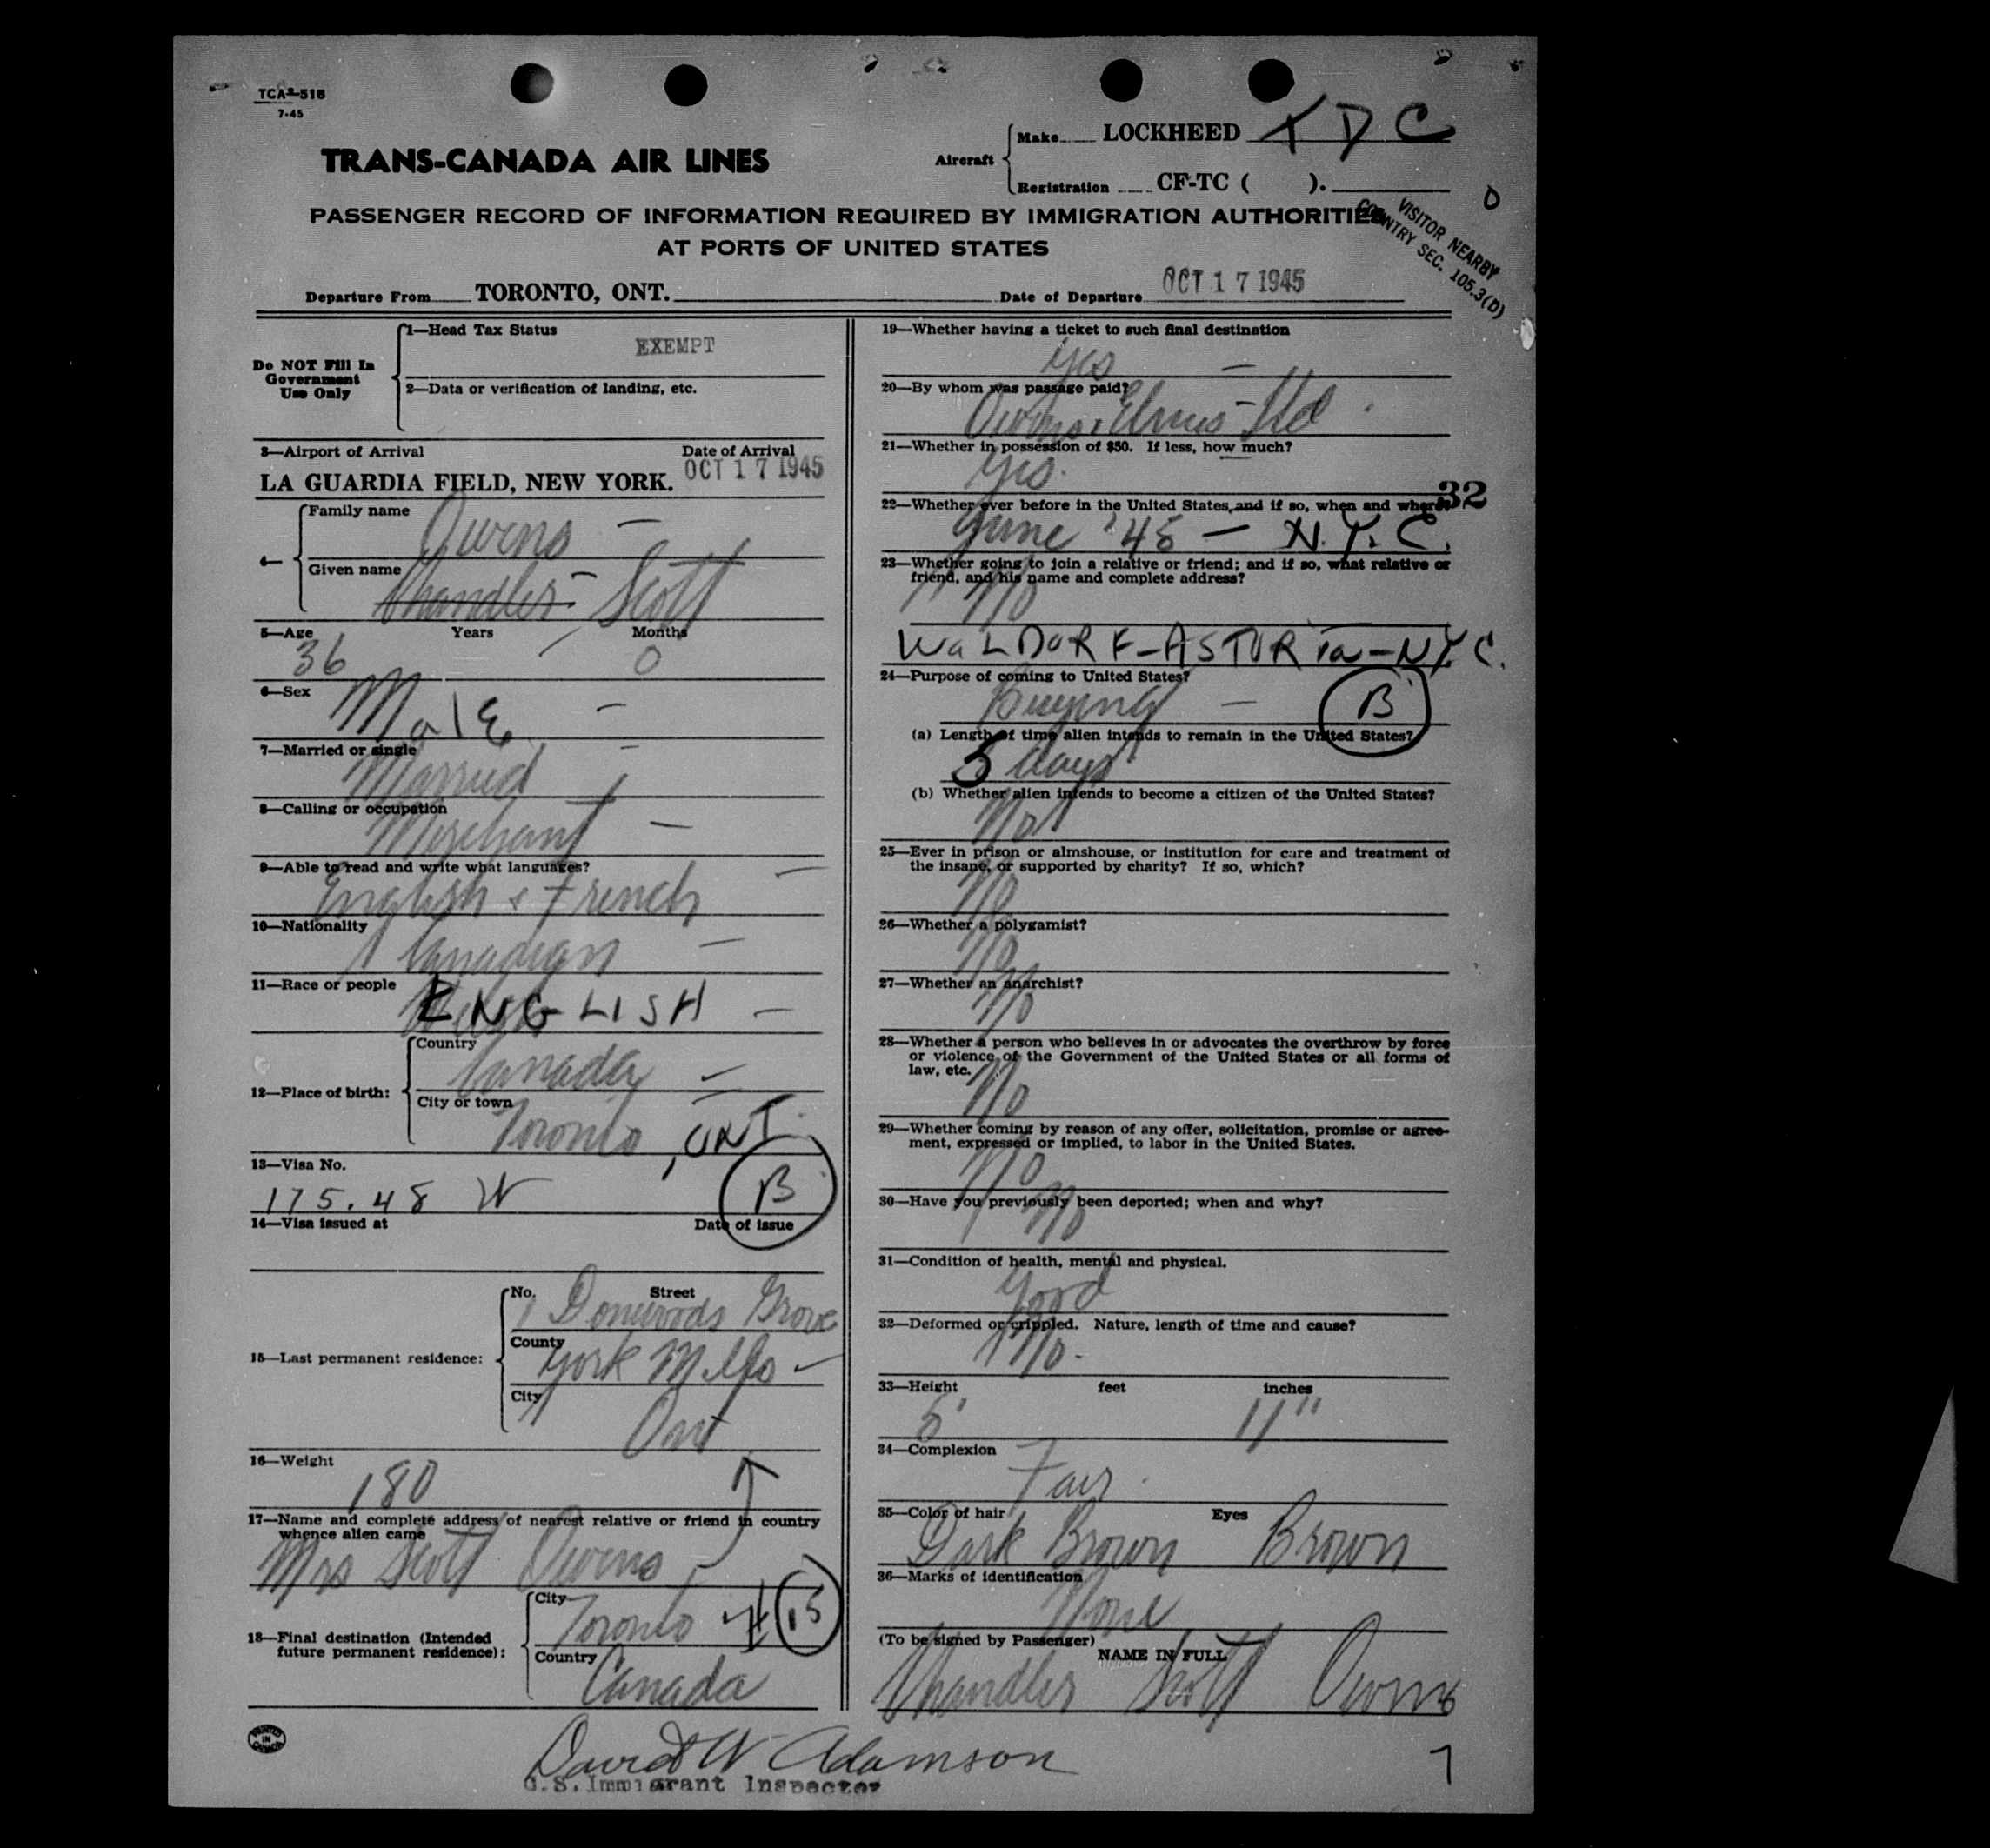 TCA-518
7-45
TRANS-CANADA AIR LINES
Aircraft
Make LOCKHEED X D C
Registration CF-TC ( ).
PASSENGER RECORD OF INFORMATION REQUIRED BY IMMIGRATION AUTHORITIES
AT PORTS OF UNITED STATES
VISITOR NEARBY
COUNTRY SEC. 105.3(D)
Departure From TORONTO, ONT. Date of Departure OCT 17 1945
Do NOT Fill In
Government
Use Only
1—Head Tax Status
EXEMPT
2—Data or verification of landing, etc.
3—Airport of Arrival Date of Arrival
LA GUARDIA FIELD, NEW YORK. OCT 17 1945
4—
Family name Owens —
Given name Chandler — Scott
5—Age Years Months
36 0
6—Sex
Male —
7—Married or single
Married
8—Calling or occupation
Merchant —
9—Able to read and write what languages?
English & French
10—Nationality
Canadian —
11—Race or people
ENGLISH —
12—Place of birth:
Country
Canada
City or town
Toronto, ONT.
13—Visa No.
175.48 W B
14—Visa issued at Date of issue
15—Last permanent residence:
No. Street
1 Donwoods Grove
County
York Mills
City
Ont
16—Weight
180
17—Name and complete address of nearest relative or friend in country
whence alien came
Mrs Scott Owens
18—Final destination (Intended
future permanent residence):
City
Toronto
Country
Canada
19—Whether having a ticket to such final destination
Yes —
20—By whom was passage paid?
Owens, Elmes Ltd
21—Whether in possession of $50. If less, how much?
Yes.
32
22—Whether ever before in the United States, and if so, when and where?
June '45 — N.Y.C.
23—Whether going to join a relative or friend; and if so, what relative or
friend, and his name and complete address?
No
WALDORF-ASTORIA-N.Y.C.
24—Purpose of coming to United States?
Buying — B
(a) Length of time alien intends to remain in the United States?
5 days
(b) Whether alien intends to become a citizen of the United States?
No
25—Ever in prison or almshouse, or institution for care and treatment of
the insane, or supported by charity? If so, which?
No
26—Whether a polygamist?
No
27—Whether an anarchist?
No
28—Whether a person who believes in or advocates the overthrow by force
or violence of the Government of the United States or all forms of
law, etc.
No
29—Whether coming by reason of any offer, solicitation, promise or agree-
ment, expressed or implied, to labor in the United States.
No
30—Have you previously been deported; when and why?
No
31—Condition of health, mental and physical.
Good
32—Deformed or crippled. Nature, length of time and cause?
No.
33—Height feet inches
5' 11"
34—Complexion
Fair
35—Color of hair Eyes
Dark Brown Brown
36—Marks of identification
None
(To be signed by Passenger)
NAME IN FULL
Chandler Scott Owens
PRINTED IN CANADA
David W Adamson
U.S. Immigrant Inspector
7